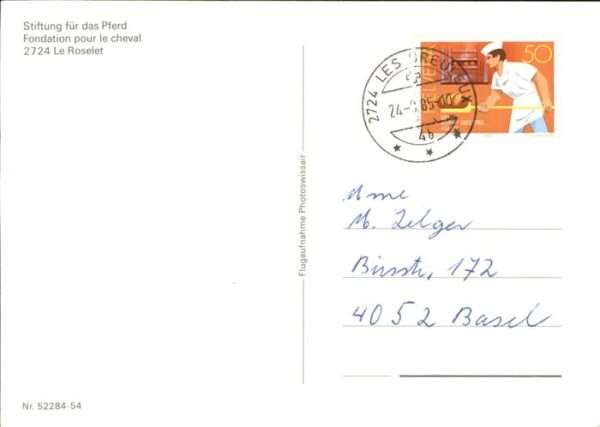 Stiftung für das Pferd
Fondation pour le cheval
2724 Le Roselet
50
HELVETIA
2724 LES BREULEUX
24-
85-10
4b
Flugaufnahme Photoswissair
Mme
M. Zelger
Birsstr, 172
4052 Basel
Nr. 52284-54